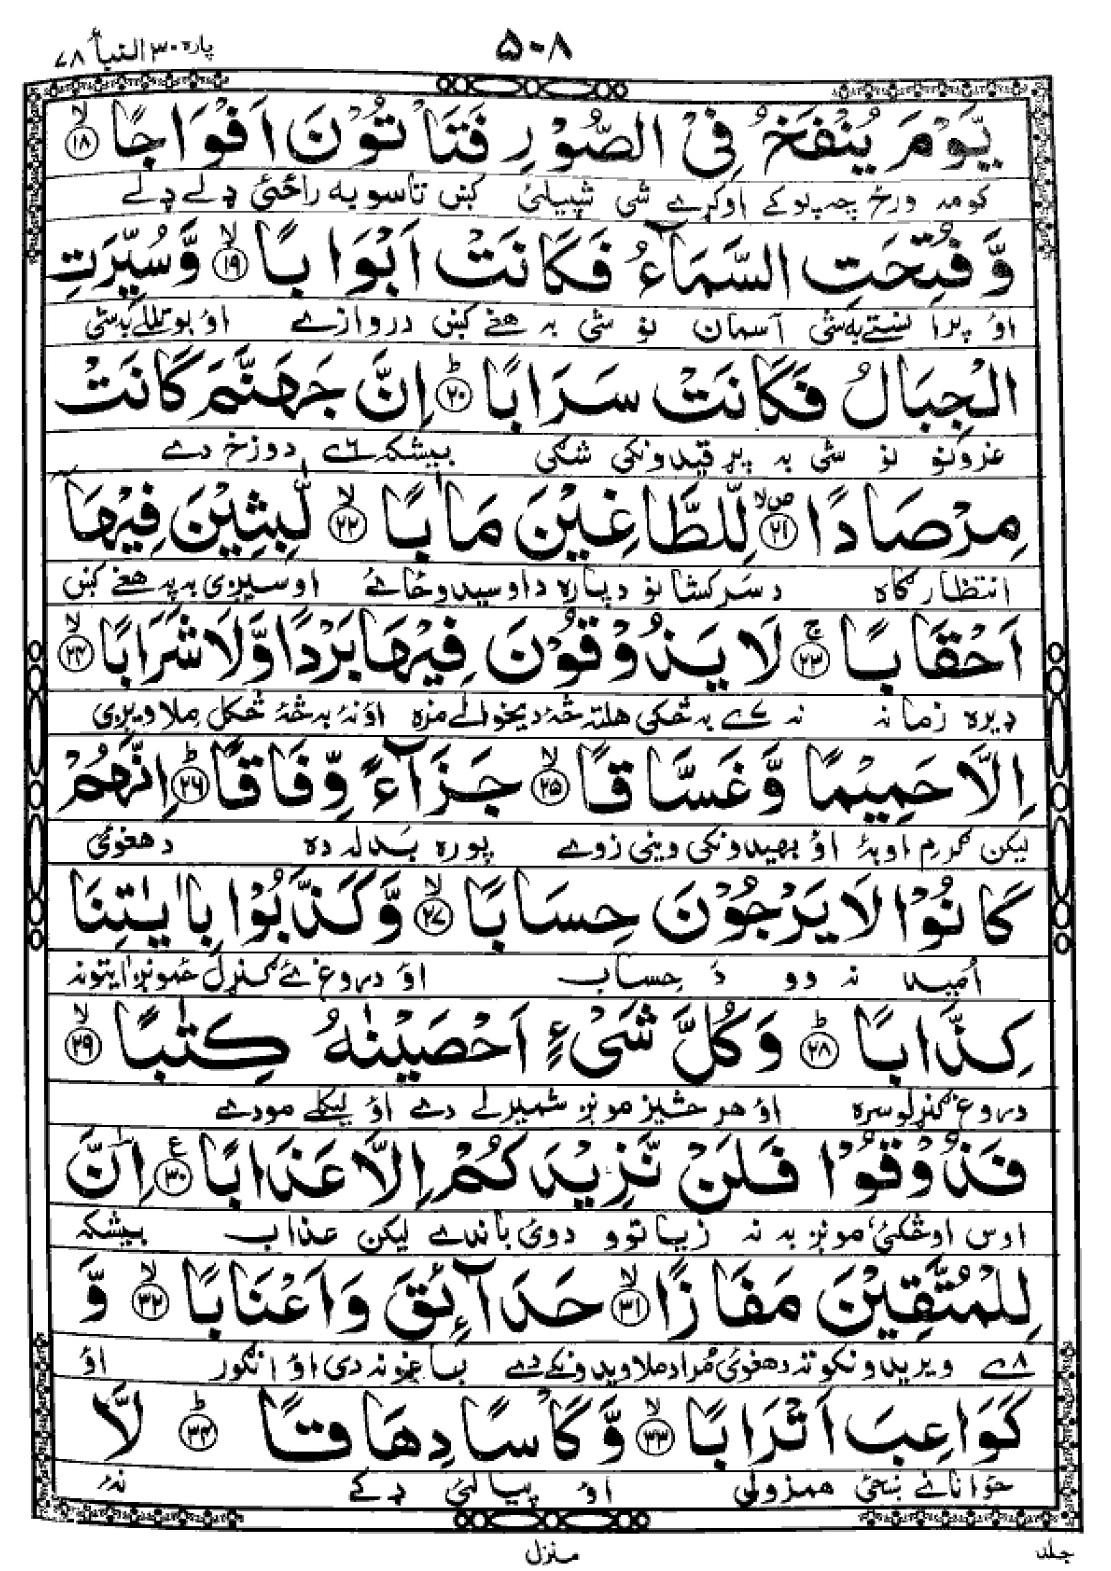 پاره ۳۰ النبأ ۷۸
۵۰۸
يَّوْمَ يُنْفَخُ فِي الصُّوْرِ فَتَأْتُوْنَ اَفْوَاجًا ۙ﴿۱۸﴾
كومه ورځ چه پوكے اوكړے شى شپيلئ كښ تاسو به راځئ ډلے ډلے
وَّ فُتِحَتِ السَّمَآءُ فَكَانَتْ اَبْوَابًا ۙ﴿۱۹﴾ وَّ سُيِّرَتِ
او پرانستے به شى آسمان نو شى به هغے كښ دروازے او بوتللے به شى
الْجِبَالُ فَكَانَتْ سَرَابًا ؕ﴿۲۰﴾ اِنَّ جَهَنَّمَ كَانَتْ
غرونو نو شى به پړقيدونكى شګى بيشكه دوزخ دے
مِرْصَادًا ۙ﴿۲۱﴾ لِّلطَّاغِيْنَ مَاٰبًا ۙ﴿۲۲﴾ لّٰبِثِيْنَ فِيْهَاۤ
انتظار ګاه د سركشانو دپاره د اوسيدو ځائے اوسيږى به په هغے كښ
اَحْقَابًا ۚ﴿۲۳﴾ لَا يَذُوْقُوْنَ فِيْهَا بَرْدًا وَّ لَا شَرَابًا ۙ﴿۲۴﴾
ډيره زمانه نه به څكى هلته څه ديخوالى مزه او نه به څه څكل ملاويږى
اِلَّا حَمِيْمًا وَّ غَسَّاقًا ۙ﴿۲۵﴾ جَزَآءً وِّفَاقًا ؕ﴿۲۶﴾ اِنَّهُمْ
ليكن ګرم اوبه او بهيدونكى وينى زوے پوره بدله ده دهغوئ
كَانُوْا لَا يَرْجُوْنَ حِسَابًا ۙ﴿۲۷﴾ وَّ كَذَّبُوْا بِاٰيٰتِنَا
اُميد نه وو دَ حساب او دروغ ئے ګنړل زمونږ ايتونه
كِذَّابًا ؕ﴿۲۸﴾ وَ كُلَّ شَىْءٍ اَحْصَيْنٰهُ كِتٰبًا ۙ﴿۲۹﴾
دروغ ګنړلو سره او هر څيز مونږ شميرلے دے او ليكلے مو دے
فَذُوْقُوْا فَلَنْ نَّزِيْدَكُمْ اِلَّا عَذَابًا ﴿۳۰﴾ ع اِنَّ
اوس اوڅكئ مونږ به نه زياتوو دوى باندے ليكن عذاب بيشكه
لِلْمُتَّقِيْنَ مَفَازًا ۙ﴿۳۱﴾ حَدَآئِقَ وَ اَعْنَابًا ۙ﴿۳۲﴾ وَّ
ويريدونكو ته دهغوئ مُراد ملاويدونكے دے باغونه دى او انګور او
كَوَاعِبَ اَتْرَابًا ۙ﴿۳۳﴾ وَّ كَاْسًا دِهَاقًا ؕ﴿۳۴﴾ لَا
ځوانانے ښځى همزولى او پيالئ ډكے نه
منزل
جلد